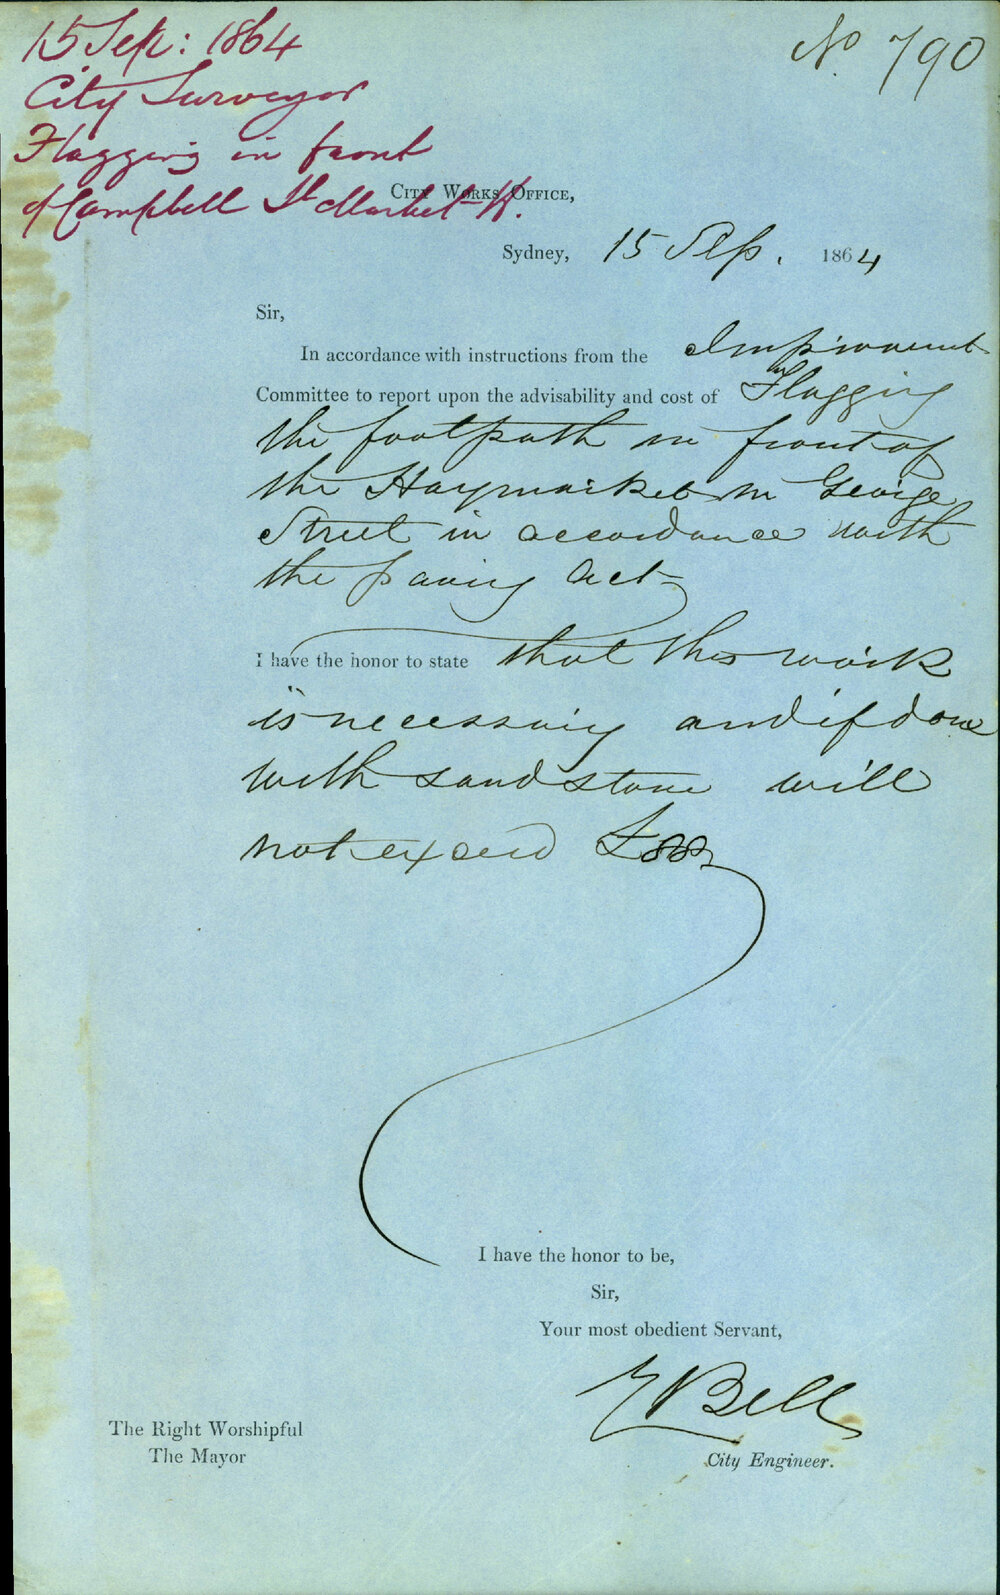 15 Sep: 1864
City Surveyor
Flagging in front
of Campbell St Market
No 790
City Works Office,
Sydney, 15 Sep. 1864
Sir,
In accordance with instructions from the Improvement
Committee to report upon the advisability and cost of Flagging
the footpath in front of
the Haymarket in George
Street in accordance with
the paving Act
I have the honor to state that this work
is necessary and if done
with sandstone will
not exceed
I have the honor to be,
Sir,
Your most obedient Servant,
Bell
City Engineer.
The Right Worshipful
The Mayor